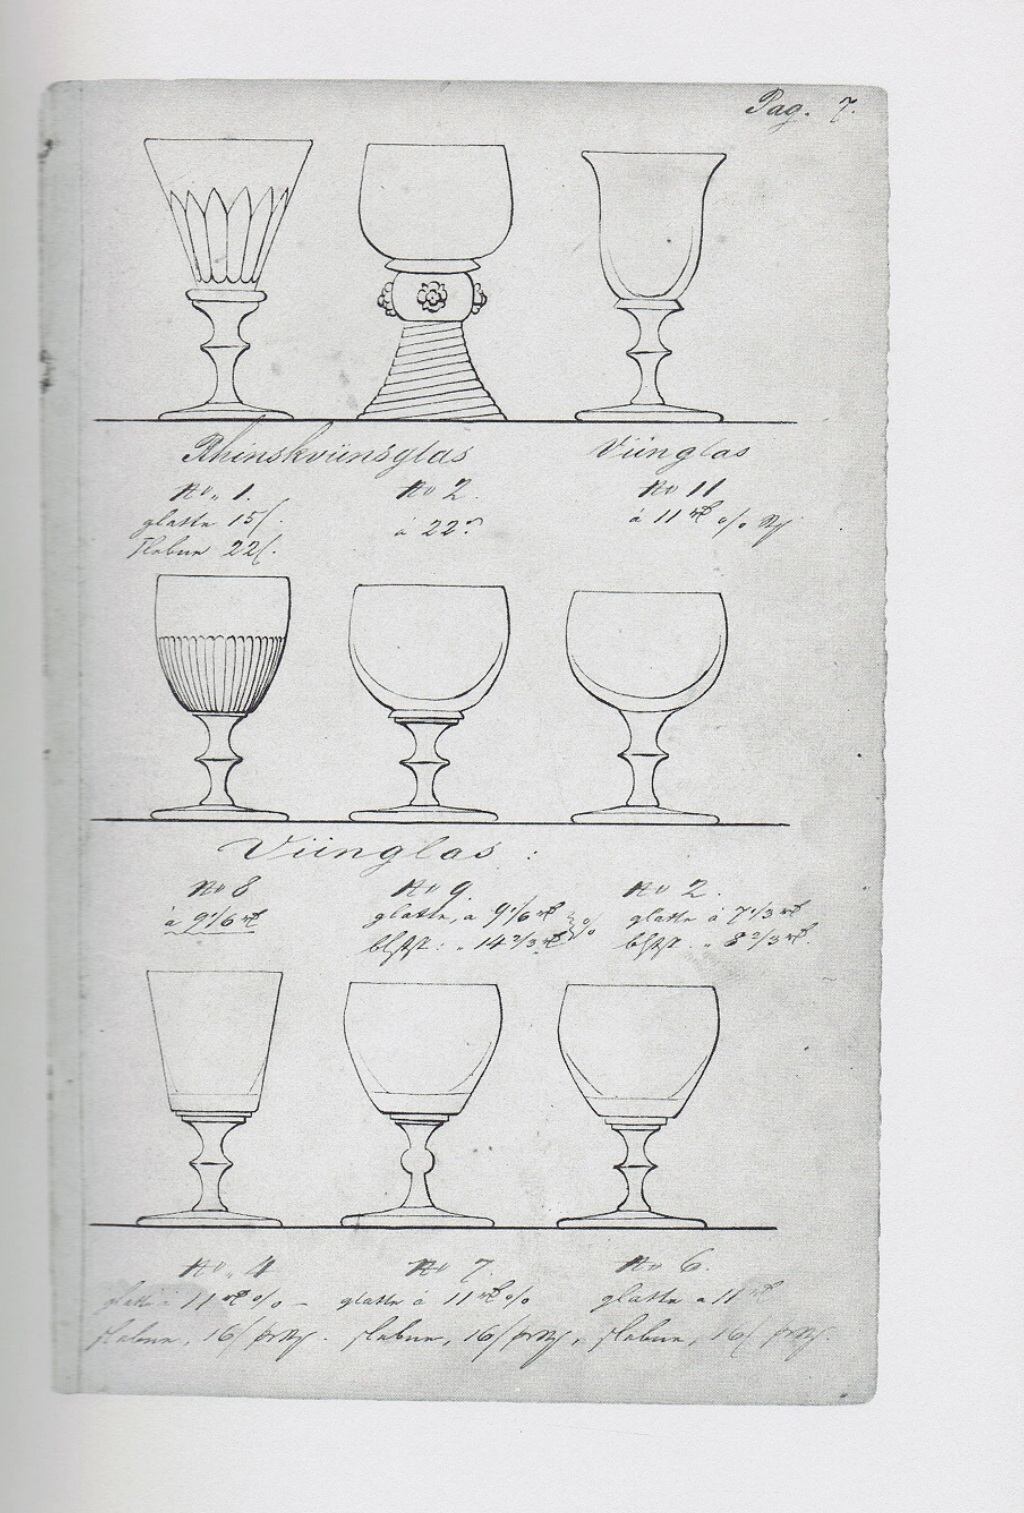 Pag. 7.
Rhinskviinsglas
Viinglas
No. 1.
No 2.
No 11
glatte 15/.
à 22
à 11 rd o/o
Slebne 22/.
Viinglas :
No 8
No 9
No 2.
à 9 1/6 rd
glatte, à 9 1/6 rd
o/o
glatte à 7 1/3 rd
14 2/3 rd
8 2/3 rd
No. 4
No 7.
No 6.
glatte à 11 rd o/o –
glatte à 11 rd o/o
glatte à 11 rd
slebne, 16/ pr
slebne, 16/ pr
slebne, 16/ pr